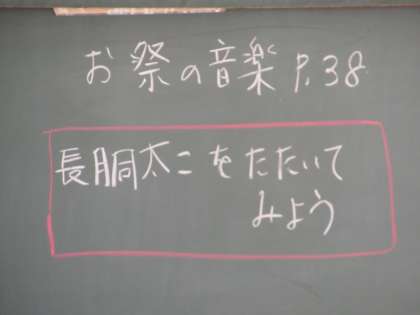 お祭の音楽 P.38
長胴太こをたたいて
みよう